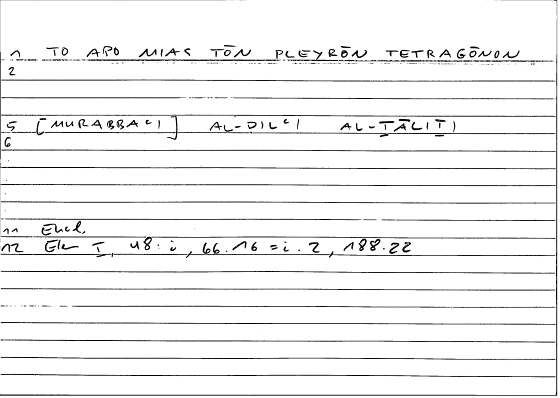 1 TO APO MIAS TŌN PLEYRŌN TETRAGŌNON
2
5 [MURABBAʿI] AL-DILʿI AL-T̲ĀLIT̲I
6
11 Eucl.
12 Elem I, 48: i, 66.16 = i. 2, 188.22